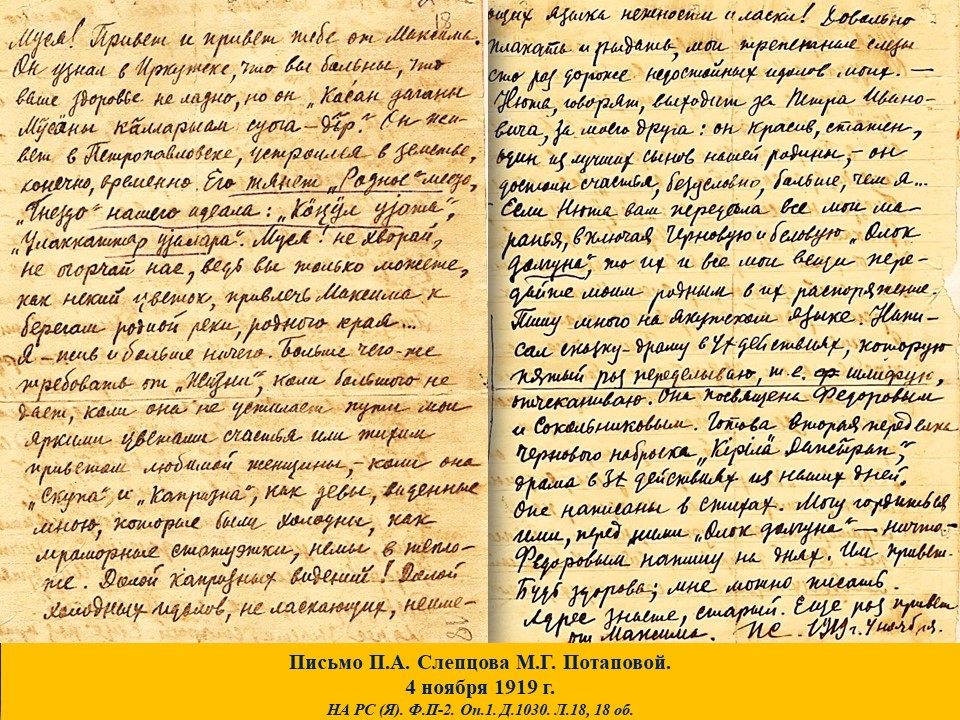 18
Муся! Привет и привет тебе от Максима.
Он узнал в Иркутске, что вы больны, что
ваше здоровье не ладно, но он „Касан даҕаны
Мӱсӓны кӓлларыам суоҕа – дӓр". Он жи-
вет в Петропавловске, устроился в земстве,
конечно, временно. Его тянет „Родное" место,
„Гнездо" нашего идеала: „Кӧҥӱл ујата",
„Улаккаттар ујалара". Муся! не хворай,
не огорчай нас, ведь вы только можете,
как некий цветок, привлечь Максима к
берегам родной реки, родного края...
Я – жив и больше ничего. Больше чего-же
требовать от „Жизни", коли большого не
дает, коли она не устилает пути мои
яркими цветами счастья или тихим
приветом любимой женщины, – коли она
„Скупа" и „Капризна", как девы, виденные
мною, которые были холодны, как
мраморные статуэтки, немы в тепло-
же. Долой капризных видений! Долой
холодных идолов, не ласкающих, неиме-
ющих языка нежности и ласки! Довольно
плакать и рыдать, мои трепетные слезы
сто раз дороже недостойных идолов моих. —
Нюта, говорят, выходит за Петра Ивано-
вича, за моего друга: он красив, статен,
один из лучших сынов нашей родины, – он
достоин счастья, безусловно, больше, чем я...
Если Нюта вам передала все мои ма-
ранья, включая Черновую и беловую „Олох
долгуна", то их и все мои вещи пере-
дайте моим родным в их распоряжение.
Пишу много на якутском языке. Напи-
сал сказку-драму в 4х действиях, которую
пятый раз переделываю, т.е. шлифую,
отчеканиваю. Она посвящена Федоровым
и Сокольниковым. Готова вторая переделка
чернового наброска „Кірілӓ Дапсітрап",
драма в 3х действиях из наших дней.
Оне написаны в стихах. Могу гордиться
ими, перед ними „Олох долгуна" — ничто.
Федоровым напишу на днях. Им привет.
Будь здорова; мне можно писать.
Адрес знаете, старый. Еще раз привет
от Максима. ПС. 1919 г. 4 ноября.
Письмо П.А. Слепцова М.Г. Потаповой.
4 ноября 1919 г.
НА РС (Я). Ф.П-2. Оп.1. Д.1030. Л.18, 18 об.